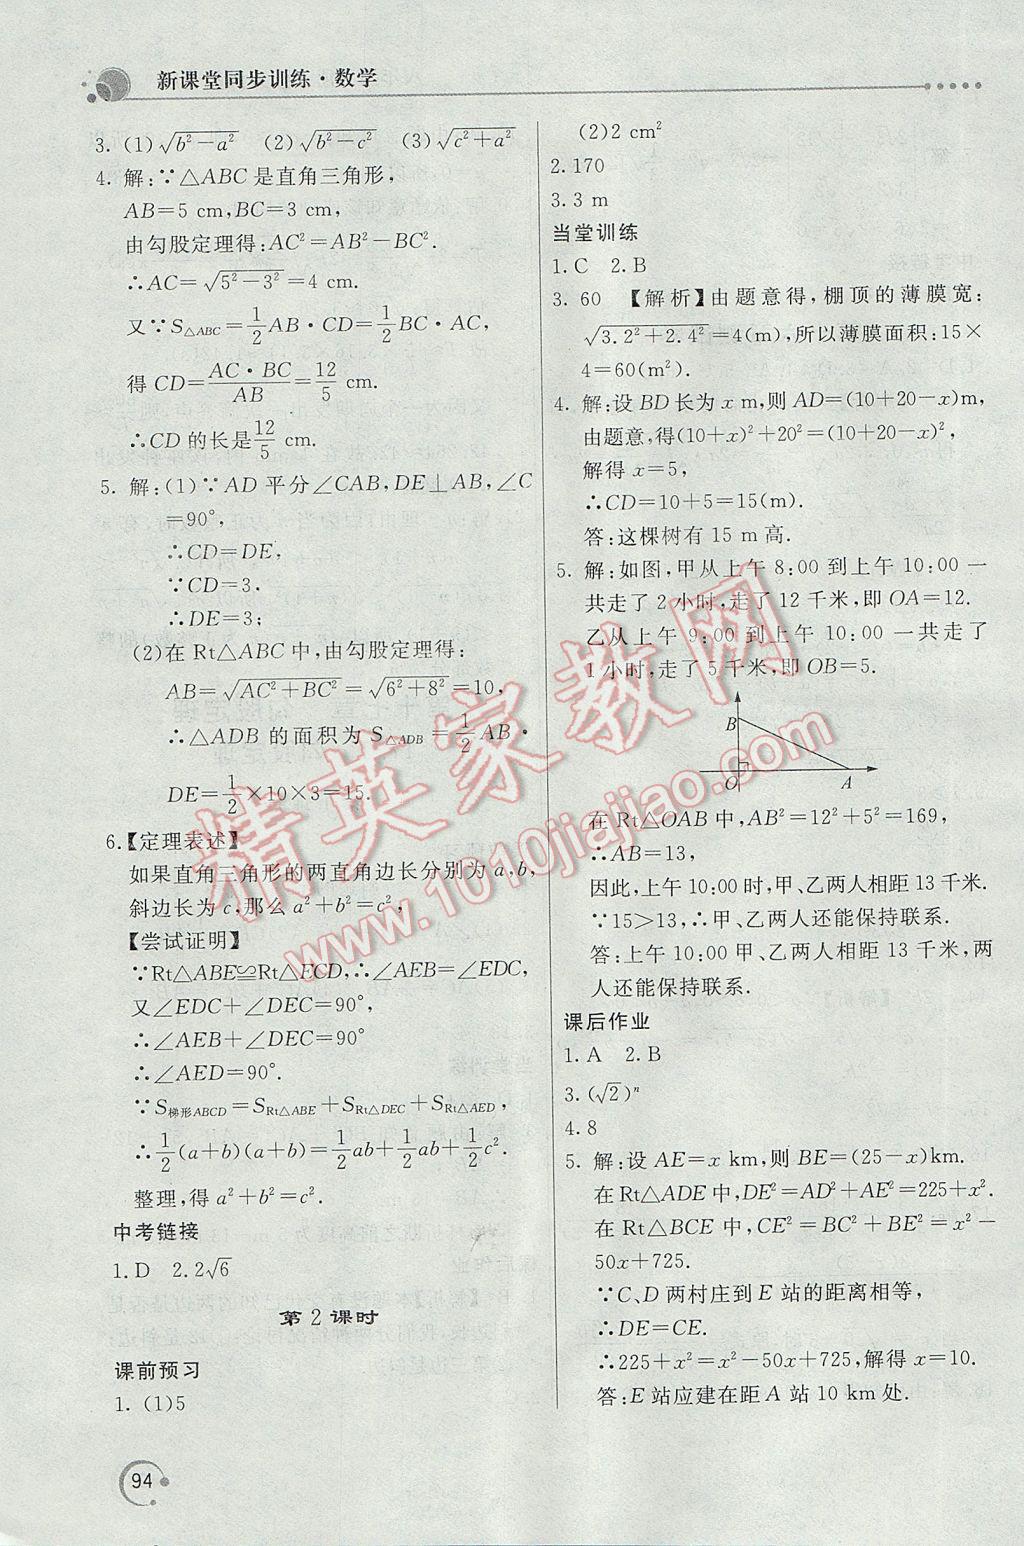 新课堂同步训练·数学
3. (1)√(b²－a²) (2)√(b²－c²) (3)√(c²＋a²)
4. 解:∵△ABC是直角三角形,
AB=5 cm,BC=3 cm,
由勾股定理得:AC²=AB²－BC².
∴AC=√(5²－3²)=4 cm.
又∵S△ABC=1/2 AB·CD=1/2 BC·AC,
得 CD=AC·BC/AB=12/5 cm.
∴CD的长是12/5 cm.
5. 解:(1)∵AD平分∠CAB,DE⊥AB,∠C
=90°,
∴CD=DE,
∵CD=3.
∴DE=3;
(2)在Rt△ABC中,由勾股定理得:
AB=√(AC²＋BC²)=√(6²＋8²)=10,
∴△ADB的面积为S△ADB=1/2 AB·
DE=1/2×10×3=15.
6.【定理表述】
如果直角三角形的两直角边长分别为a,b,
斜边长为c,那么a²＋b²=c²,
【尝试证明】
∵Rt△ABE≌Rt△ECD,∴∠AEB=∠EDC,
又∠EDC＋∠DEC=90°,
∴∠AEB＋∠DEC=90°.
∴∠AED=90°.
∵S梯形ABCD=SRt△ABE＋SRt△DEC＋SRt△AED,
∴1/2(a＋b)(a＋b)=1/2ab＋1/2ab＋1/2c².
整理,得a²＋b²=c².
中考链接
1. D 2. 2√6
第2课时
课前预习
1. (1)5
94
(2)2 cm²
2. 170
3. 3 m
当堂训练
1. C 2. B
3. 60 【解析】由题意得,棚顶的薄膜宽:
√(3.2²＋2.4²)=4(m),所以薄膜面积:15×
4=60(m²).
4. 解:设BD长为x m,则AD=(10+20－x)m,
由题意,得(10+x)²+20²=(10+20－x)²,
解得x=5,
∴CD=10+5=15(m).
答:这棵树有15 m高.
5. 解:如图,甲从上午8:00到上午10:00一
共走了2小时,走了12千米,即OA=12.
乙从上午9:00到上午10:00一共走了
1小时,走了5千米,即OB=5.
B
O A
在Rt△OAB中,AB²=12²+5²=169,
∴AB=13,
因此,上午10:00时,甲、乙两人相距13千米.
∵15>13,∴甲、乙两人还能保持联系.
答:上午10:00甲、乙两人相距13千米,两
人还能保持联系.
课后作业
1. A 2. B
3. (√2)ⁿ
4. 8
5. 解:设AE=x km,则BE=(25－x)km.
在Rt△ADE中,DE²=AD²+AE²=225+x².
在Rt△BCE中,CE²=BC²+BE²=x²－
50x+725.
∵C、D两村庄到E站的距离相等,
∴DE=CE.
∴225+x²=x²－50x+725,解得x=10.
答:E站应建在距A站10 km处.
精英家教网
www.1010jiajiao.com